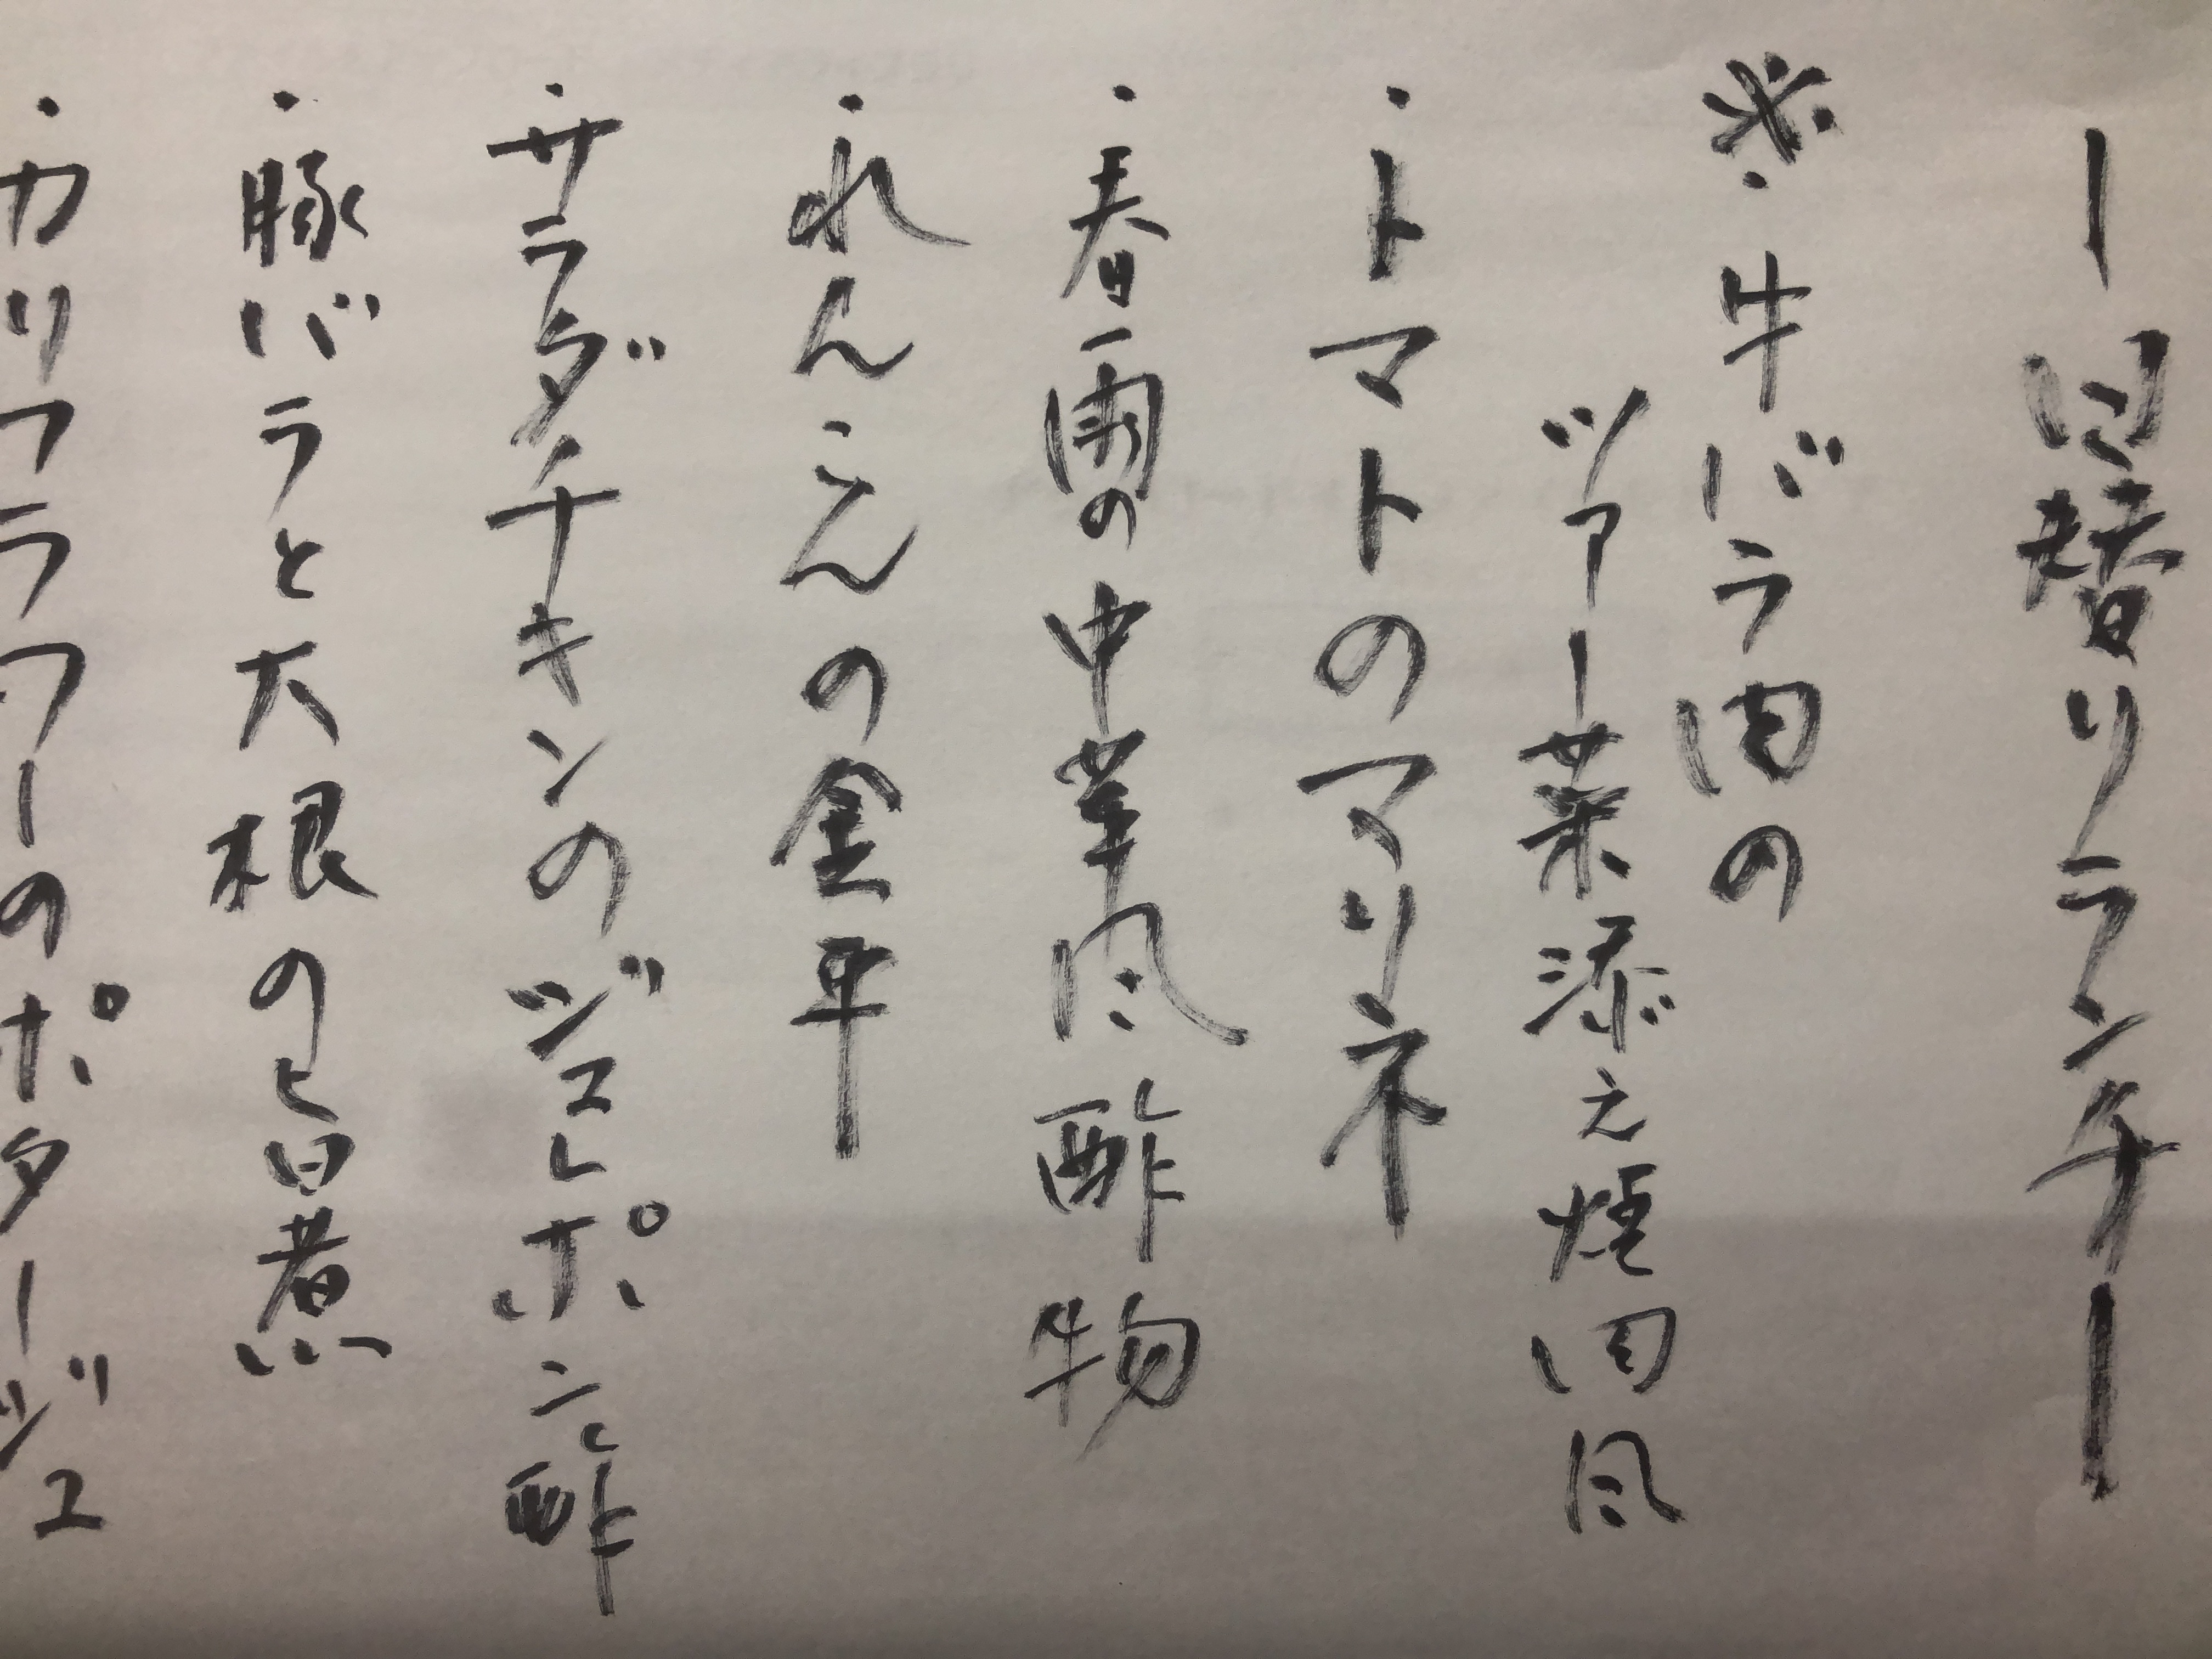 ー日替りランチー
※・牛バラ肉の
ツァー菜添え焼肉風
・トマトのマリネ
・春雨の中華風酢物
・れんこんの金平
・サラダチキンのジュレポン酢
・豚バラと大根の旨煮
・カリフラワーのポタージュ